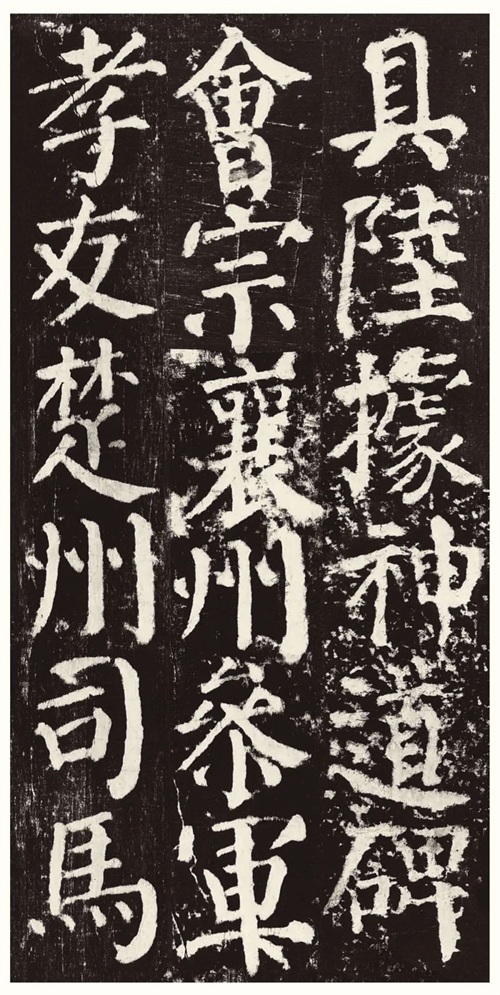 具陸據神道碑
會宗襄州叅軍
孝友楚州司馬